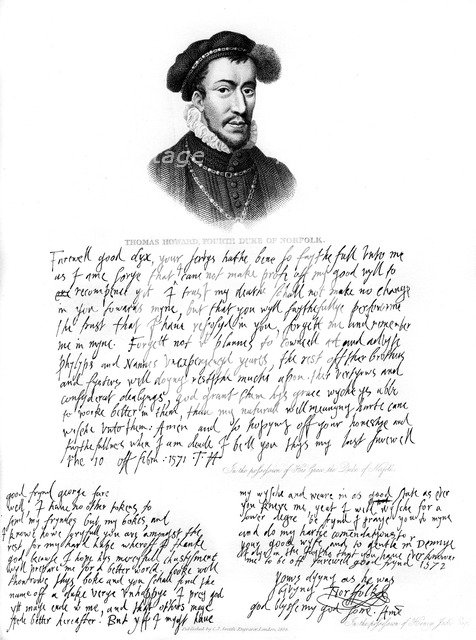 tage
THOMAS HOWARD, FOURTH DUKE OF NORFOLK.
Farewell good dyx, your servys hathe bene so faythefull unto me
as I ame sorye that I can not make profe off my good wyll to
recompence yt. I trust my deathe shall not make no change
in you towards myne, but that you wyll faythefullye performe
the trust that I have reposyd in you, forgett me and remember
me in myne. Forgett not to counsell and
Phylyps and Nannes unexperyenced yeares, the rest off ther brothers
and systers well doynge restythe muche upon ther vertyous and
consyderat dealyngs, god grant them hys grace wyche ys able
to worke better in them, than my natural well meanyng harte cane
wysche unto them: Amen and so hopyng off your honestye and
faythefullnes when I am deade I byd you thys my last farewell
the 10 off febru: 1571 T H
In the possession of His Grace the Duke of Norfolk.
good frynd george fare
well, I have no other tokens to
send my fryndes but my bokes, and
I knowe how sorofull you are amongst the
rest for my hard hape wherof I thanke
god because I hope hys mercyfull chastysment
wyll prepare me for a better worlde, looke well
throwout thys boke and you shall find the
name off a duke verye unhappye I pray god
yt maye ende with me, and that others maye
spede better hereafter. But yff I myght have
my wysche and weare in as good state as ever
you knewe me, yeat I wold wysche for a
lower degre be frynd I praye you to myne
and do my hartie comendations to
your good wyff and to gentle mr Dennye
I dye in the faythe that you have ever knowen
me to be off farewell good frynd 1572
yours dyeng as he was
lyvyng Norfolk
god blysse my god sone. Ame